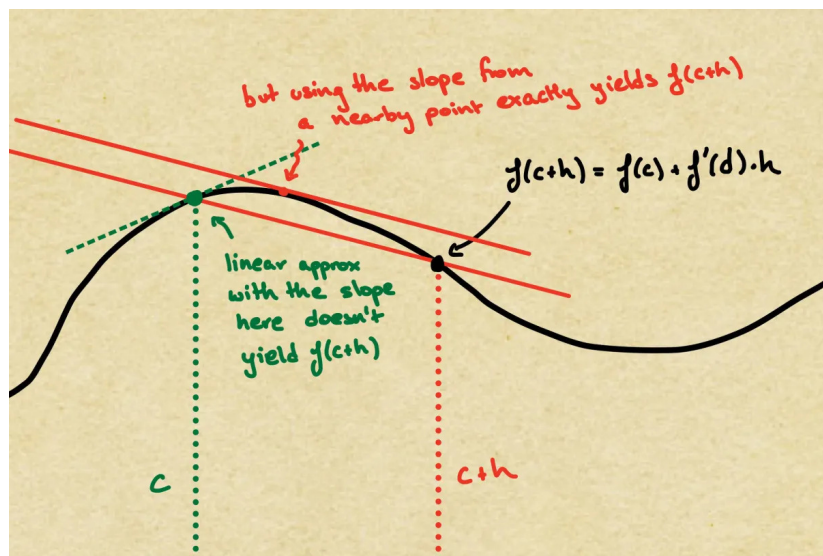 but using the slope from
a nearby point exactly yields f(c+h)
f(c+h) = f(c) + f'(d)·h
linear approx
with the slope
here doesn't
yield f(c+h)
c
c+h